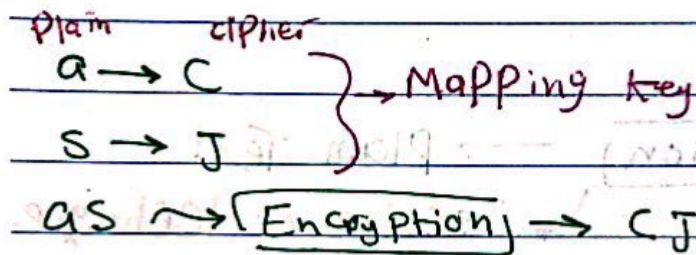 Plain cipher
a → C
→ Mapping key
S → J
as → Encryption → CJ